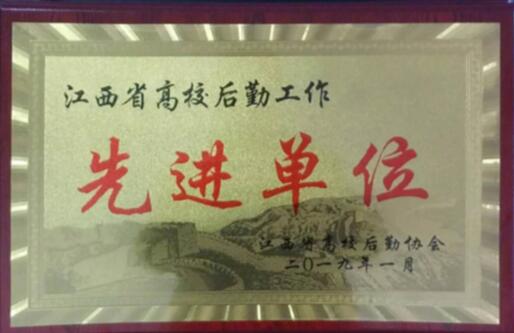 江西省高校后勤工作
先进单位
江西省高校后勤协会
二〇一九年一月